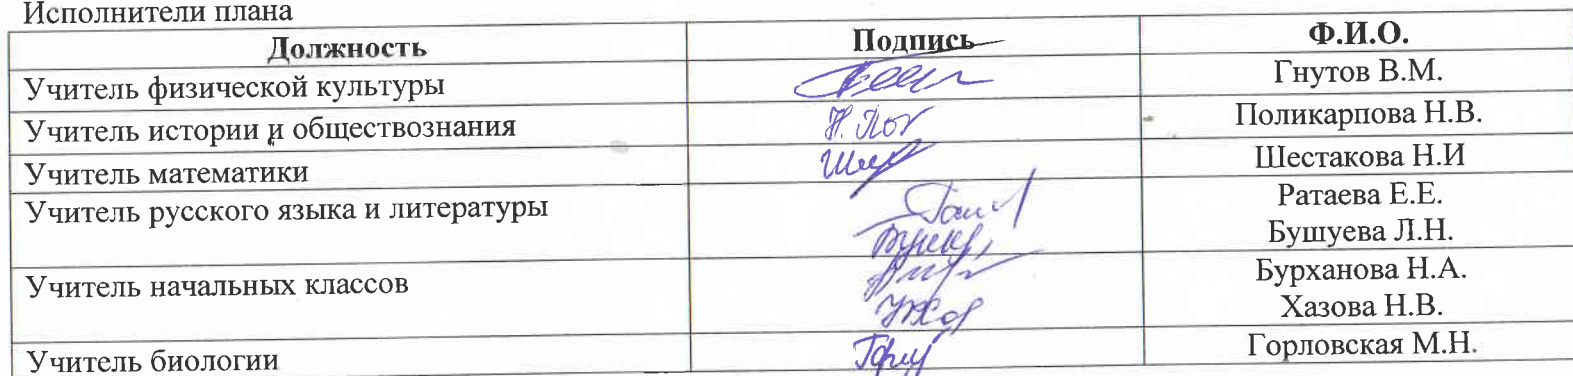 Исполнители плана
Должность Подпись Ф.И.О.
Учитель физической культуры Гнутов В.М.
Учитель истории и обществознания Поликарпова Н.В.
Учитель математики Шестакова Н.И
Учитель русского языка и литературы Ратаева Е.Е.
Бушуева Л.Н.
Учитель начальных классов Бурханова Н.А.
Хазова Н.В.
Учитель биологии Горловская М.Н.